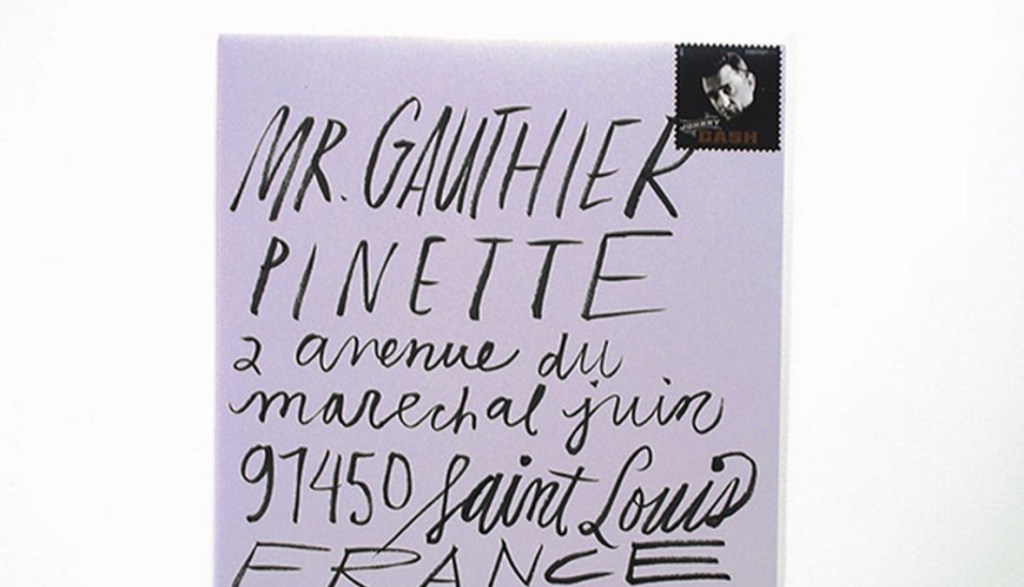 JOHNNY
CASH
MR. GAUTHIER
PINETTE
2 avenue du
marechal juin
97450 Saint Louis
FRANCE